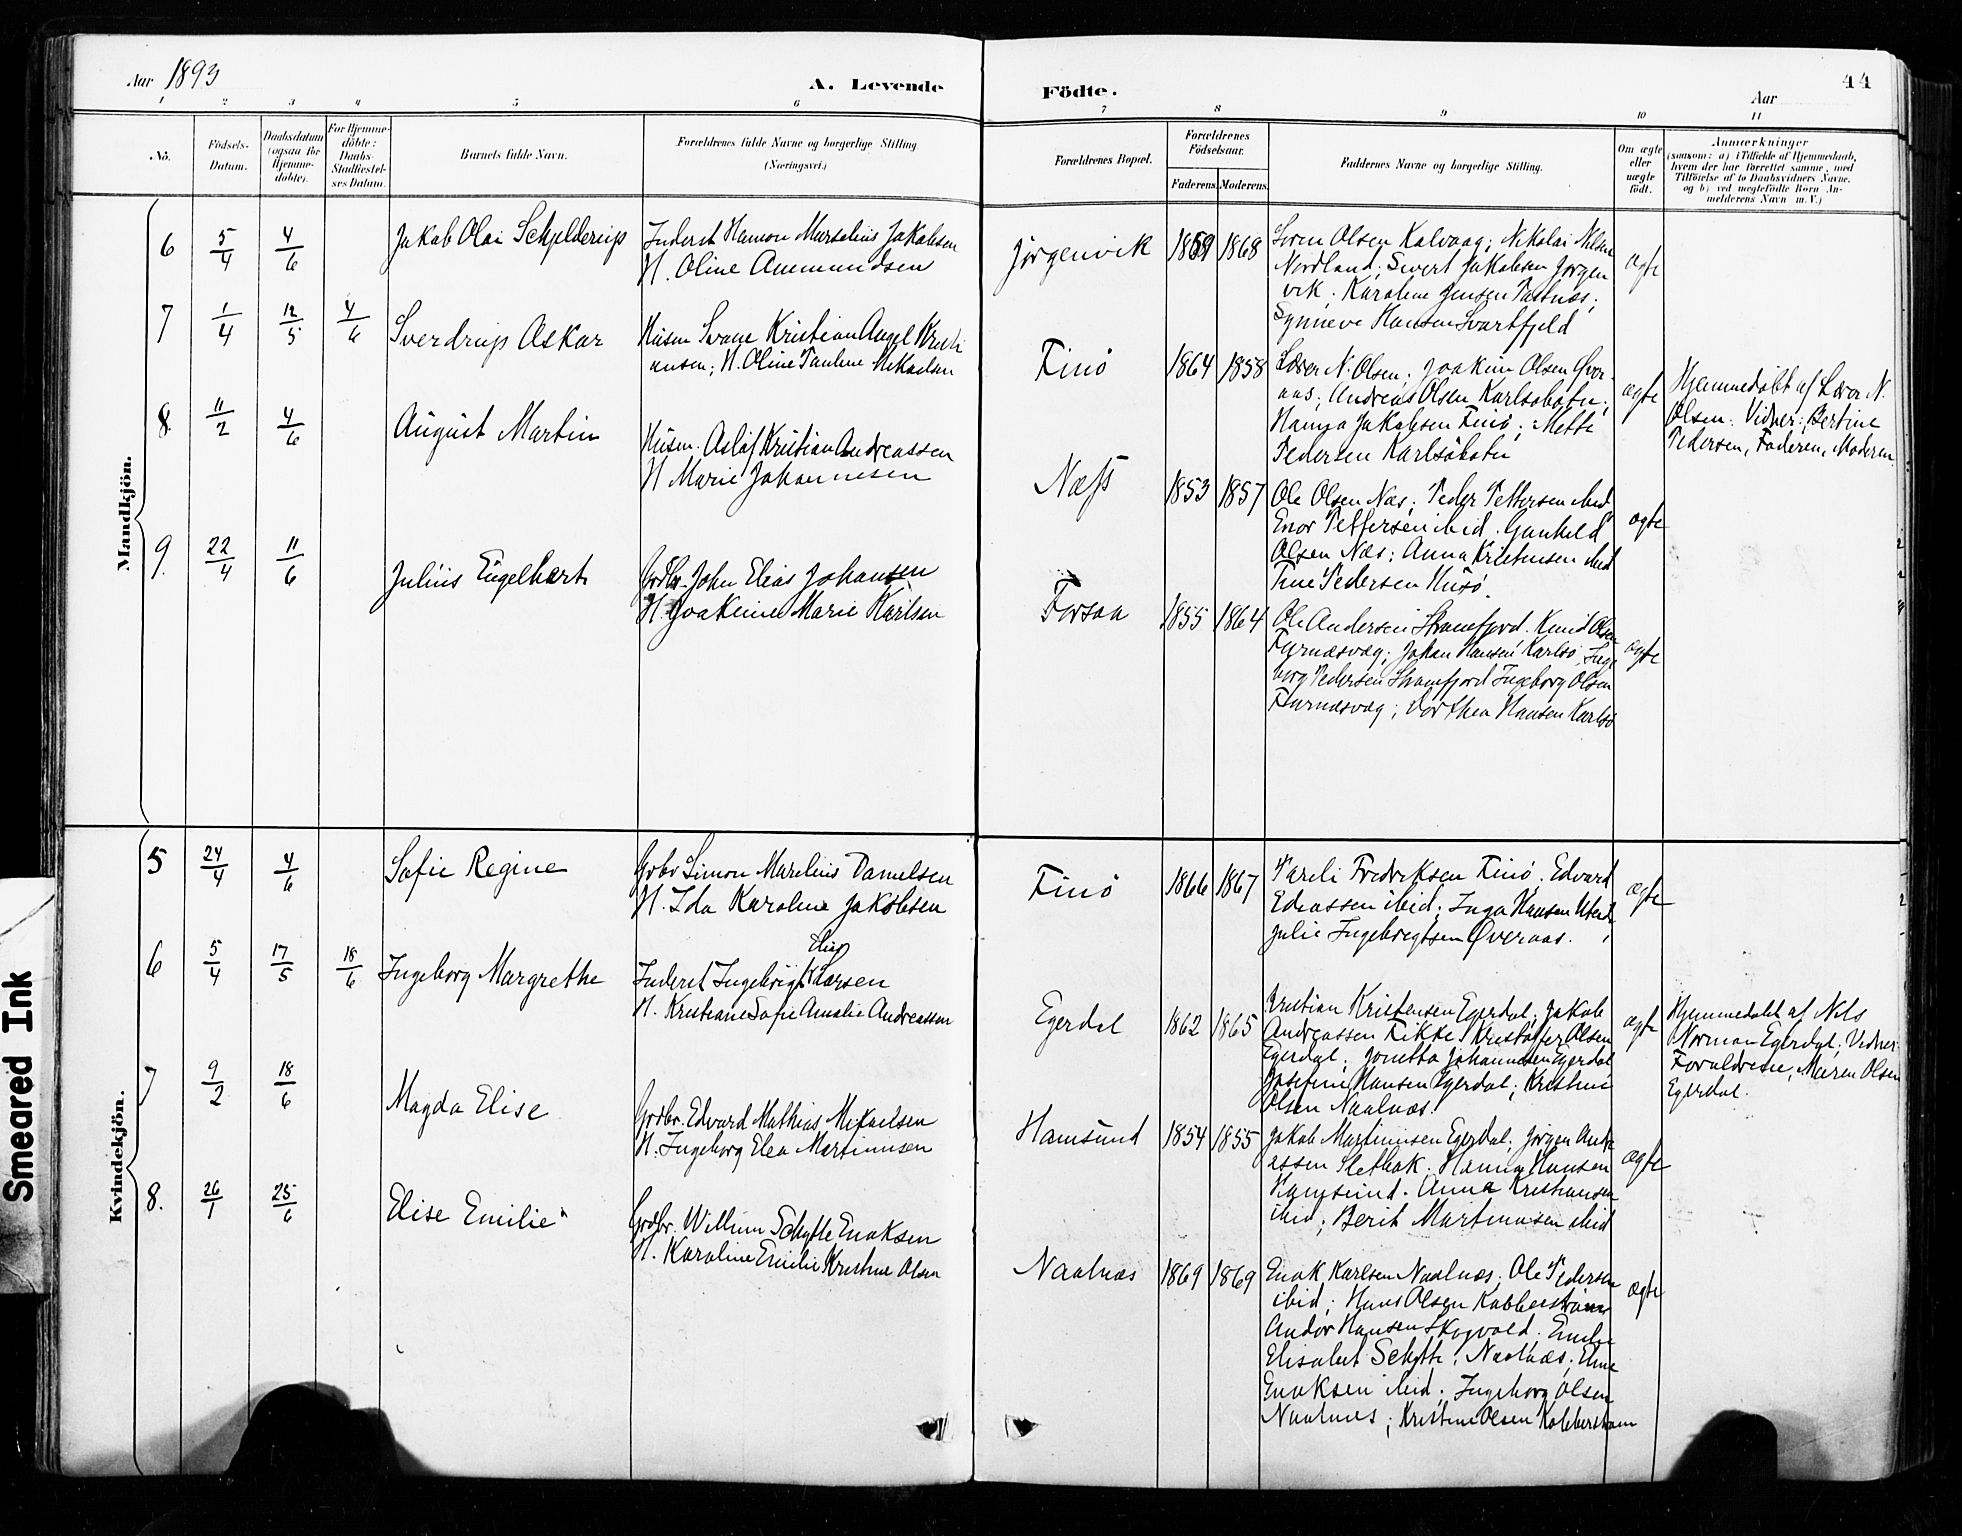 Aar 1893
A. Levende
Födte.
44
Aar
1 2 3 4 5 6 7 8 9 10 11
No.
Födsels-
Datum.
Daabsdatum
(ogsaa for
Hjemme-
döbte).
For Hjemme-
döbte:
Daabs-
Stadfæstel-
ses Datum.
Barnets fulde Navn.
Forældrenes fulde Navne og borgerlige Stilling
(Næringsvei.)
Forældrenes Bopæl.
Forældrenes
Födselsaar.
Faderens.
Moderens.
Faddernes Navne og borgerlige Stilling.
Om ægte
eller
uægte
födt.
Anmærkninger
(saasom: a) i Tilfælde af Hjemmedaab,
hvem der har forrettet samme, med
Tilföielse af to Daabsvidners Navne,
og b) ved uægtefödte Børn An-
melderens Navn m.V.)
Mandkjön.
6 5/4 4/6
Jakob Olai Schjelderup
Inderst Hamon Marselius Jakobsen
H. Oline Ammundsen
Jørgenvik 1859 1868
Soren Olsen Kalvaag; Nikolai Nilsen
Nordland; Sivert Jakobsen Jørgen
vik; Karoline Jensen
Synneve Hansen Svartfjeld
ægte
7 1/4 12/5 4/6
Sverdrup Oskar
Husm Kristian Kristi
ansen; H. Oline Pauline Mikaelsen
Finø 1864 1858
Lærer N. Olsen; Joakim Olsen Øver
aas; Andreas Olsen
Hanna Jakobsen Finø; Mette
Pedersen
ægte
Hjemmedøbt af Lærer N.
Olsen. Vidner: Bertine
Pedersen, Faderen, Moderen.
8 11/2 4/6
August Martin
Husm. Aslaf Kristian Andreassen
H Marie Johannesen
Næss 1853 1857
Ole Olsen Næs; Peder Pettersen ibid
Enor Pettersen ibid; Gunhild
Olsen Næs; Anna Kristensen ibid
Trine Pedersen Husø.
ægte
9. 22/4 11/6
Julius Engelhart
Grdbr. John Elias Johansen
H. Joakime Marie Karlsen
Forsaa 1855 1864
Ole Andersen Knud Olsen
Furnæsvaag; Johan Hansen Karlsø; Inge
borg Pedersen Ingeborg Olsen
Furnæsvæg; Dorthea Hansen Karlsø
ægte
Kvindekjön.
5 24/4 4/6
Sofie Regine
Grbr Simon Marelius Danielsen
H. Ida Karoline Jakobsen
Finø 1866 1867
Pareli Fredriksen Finø; Edvard
Eliassen ibid; Inga Hansen
Julie Ingebregtsen Øveraas.
ægte
6 5/4 17/5 18/6
Ingeborg Margrethe
Elias
Inderst Ingebrigt Larsen
H. Kristiane Sofie Amalie Andreassen
Egerdal 1862 1865
Kristian Kristensen Egerdal; Jakob
Andreassen Kristoffer Olsen
Egerdal; Jonetta Johannesen Egerdal
Josefine Hansen Egerdal; Kristine
Olsen Naalnæs.
ægte
Hjemmedøbt af Nils
Norman Egerdal, Vidner
Forældrene, Maren Olsen
Egerdal.
7 9/2 18/6
Magda Elise
Grdbr. Edvard Mathias Mikaelsen
H. Ingeborg Elea Martinusen
Hamsund 1854 1855
Jakob Martinusen Egerdal; Jørgen Andre
assen Sletbak. Hanna Hansen
Hamsund. Anna Kristiansen
ibid; Berit Martinusen ibid
ægte
8. 26/1 25/6
Elise Emilie
Grdbr. Willum Schytte Enoksen
H. Karoline Emilie Kristine Olsen
Naalnæs 1869 1869
Enok Karlsen Naalnæs; Ole Pedersen
ibid; Hans Olsen Kobberstrøm
Andor Hansen Skogvold; Emilie
Elisabet Schytte, Naalnæs; Eline
Enoksen ibid; Ingeborg Olsen
Naalnæs; Kristine Olsen Kobberstrøm
ægte
Smeared Ink